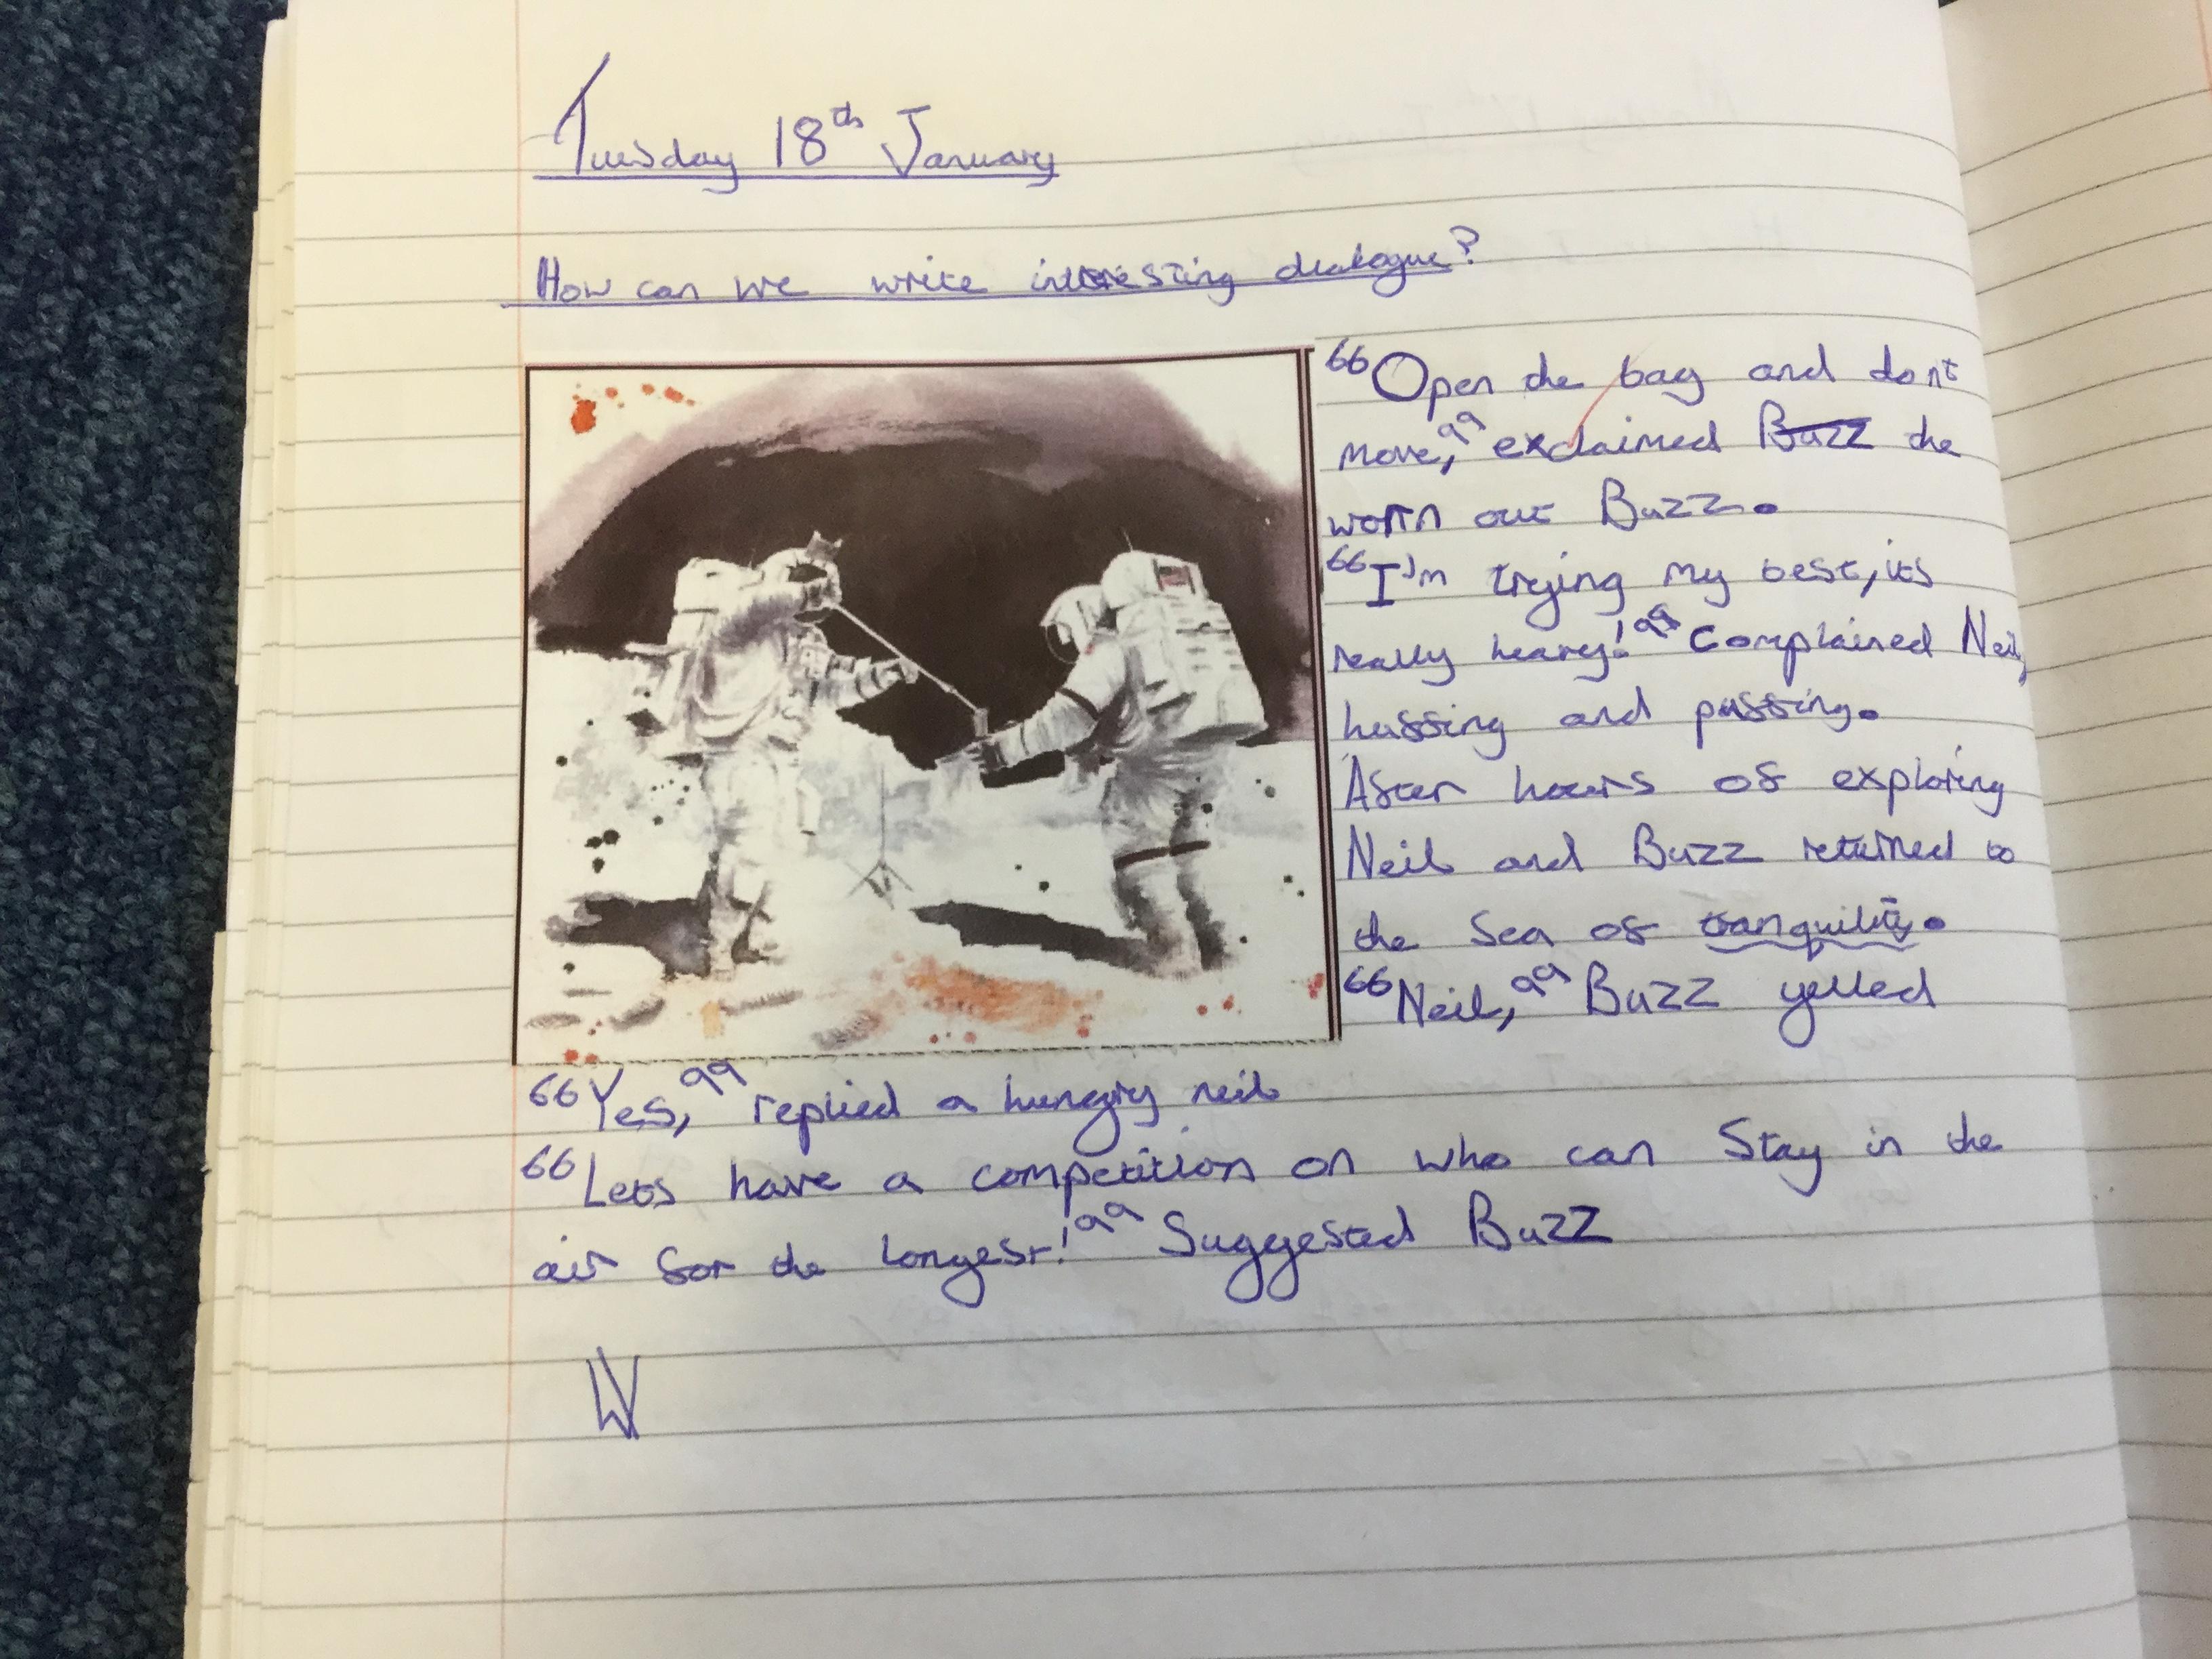 Tuesday 18th January
How can we write interesting dialogue?
"Open the bag and dont
move," exclaimed Buzz the
worn out Buzz.
"I'm trying my best, its
really heavy!" Complained Neil,
huffing and puffing.
After hours of exploring
Neil and Buzz returned to
the Sea of tranquility.
"Neil," Buzz yelled
"Yes," replied a hungry neil
"Lets have a competition on who can Stay in the
air for the longest!" Suggested Buzz